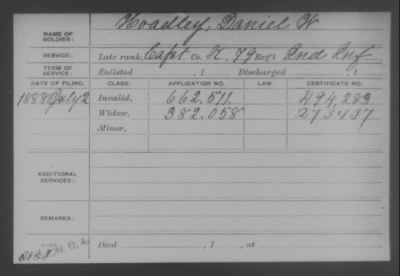 NAME OF SOLDIER: Hoadley, Daniel W
SERVICE: Late rank, Capt Co. K, 79 Reg't Ind Inf
TERM OF SERVICE: Enlisted , 1 Discharged , 1
DATE OF FILING. CLASS. APPLICATION NO. LAW. CERTIFICATE NO.
1888 July 2 Invalid, 662.511. 494,283
Widow, 382.058
Minor,
ADDITIONAL SERVICES:
REMARKS:
Died , 1 , at